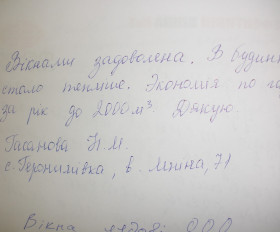 Вікнами задоволена. В будин
стало тепліше. Экономія по га
за рік до 2000м³. Дякую.
Гасанова Н.М.
с. Геронимівка, в. 71
Вікна